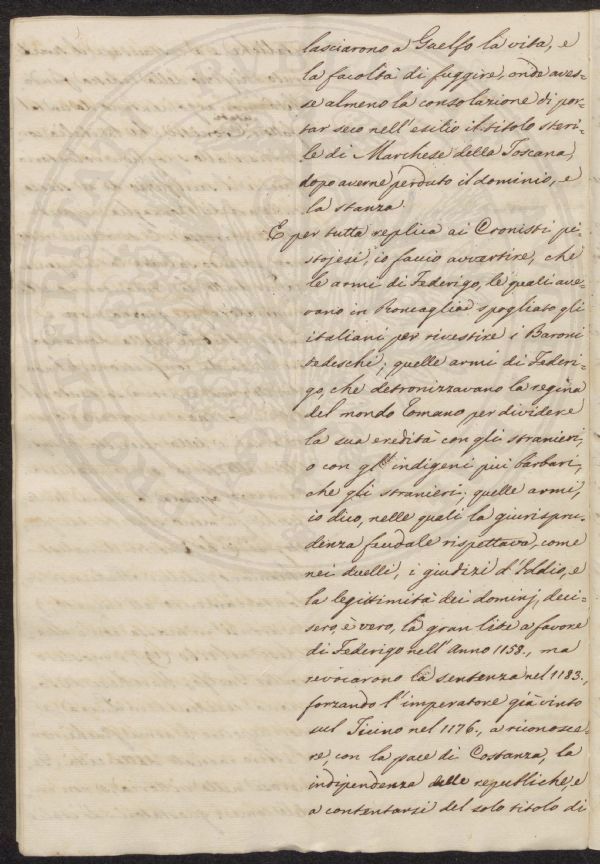 lasciarono a Guelfo la vita, e
la facoltà di fuggire, onde aves-
se almeno la consolazione di por-
tar seco nell'esilio il titolo steri-
le di Marchese della Toscana,
dopo averne perduto il dominio, e
la stanza.
E per tutta replica ai Cronisti pi-
stojesi, io faccio avvertire, che
le armi di Federigo, le quali ave-
vano in Roncaglia spogliato gli
italiani per rivestire i Baroni
tedeschi; quelle armi di Federi-
go, che detronizzavano la regina
del mondo romano, per dividere
la sua eredità con gli stranieri,
o con gl'indigeni più barbari,
che gli stranieri; quelle armi,
io dico, nelle quali la giurispru-
denza feudale rispettava, come
nei duelli, i giudizi d'Iddio, e
la legittimità dei dominj, deci-
sero, è vero, la gran lite a favore
di Federigo nell'Anno 1158., ma
revocarono la sentenza nel 1183.,
forzando l'imperatore già vinto
sul Ticino nel 1176., a riconosce-
re, con la pace di Costanza, la
indipendenza delle repubbliche, e
a contentarsi del solo titolo di